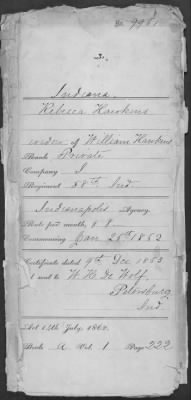 No. 9981
Indiana.
Rebecca Hawkins
widow of William Hawkins
Rank Private
Company I
Regiment 58th Ind
Indianapolis Agency.
Rate per month, $8
Commencing Jan 25th 1863
Certificate dated 9th Dec 1863
& sent to W. H. De Wolf,
Petersburg,
Ind.
Act 14th July, 1862.
Book A Vol. 1 Page 222